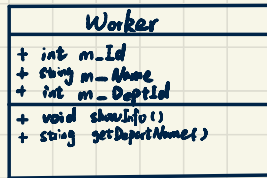 Worker
+ int m_Id
+ string m_Name
+ int m_DeptId
+ void showInfo()
+ string getDepartName()